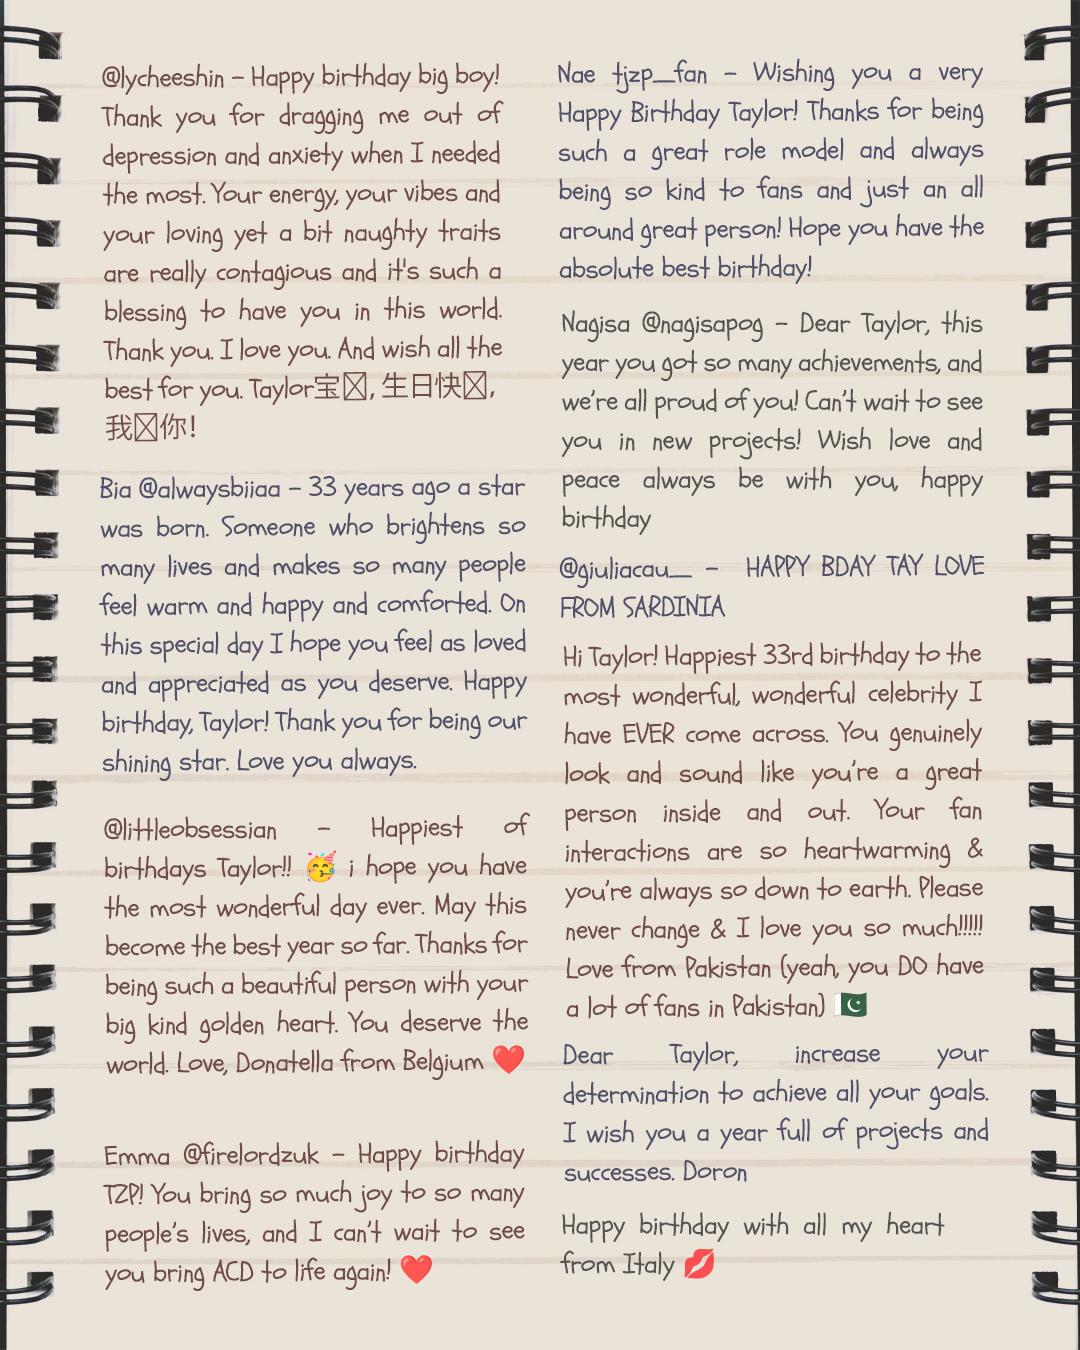 @lycheeshin – Happy birthday big boy!
Thank you for dragging me out of
depression and anxiety when I needed
the most. Your energy, your vibes and
your loving yet a bit naughty traits
are really contagious and it's such a
blessing to have you in this world.
Thank you. I love you. And wish all the
best for you. Taylor宝☒, 生日快☒,
我☒你!
Bia @alwaysbiiaa – 33 years ago a star
was born. Someone who brightens so
many lives and makes so many people
feel warm and happy and comforted. On
this special day I hope you feel as loved
and appreciated as you deserve. Happy
birthday, Taylor! Thank you for being our
shining star. Love you always.
@littleobsessian – Happiest of
birthdays Taylor!! 🥳 i hope you have
the most wonderful day ever. May this
become the best year so far. Thanks for
being such a beautiful person with your
big kind golden heart. You deserve the
world. Love, Donatella from Belgium ❤️
Emma @firelordzuk – Happy birthday
TZP! You bring so much joy to so many
people's lives, and I can't wait to see
you bring ACD to life again! ❤️
Nae tjzp__fan – Wishing you a very
Happy Birthday Taylor! Thanks for being
such a great role model and always
being so kind to fans and just an all
around great person! Hope you have the
absolute best birthday!
Nagisa @nagisapog – Dear Taylor, this
year you got so many achievements, and
we're all proud of you! Can't wait to see
you in new projects! Wish love and
peace always be with you, happy
birthday
@giuliacau__ – HAPPY BDAY TAY LOVE
FROM SARDINIA
Hi Taylor! Happiest 33rd birthday to the
most wonderful, wonderful celebrity I
have EVER come across. You genuinely
look and sound like you're a great
person inside and out. Your fan
interactions are so heartwarming &
you're always so down to earth. Please
never change & I love you so much!!!!!
Love from Pakistan (yeah, you DO have
a lot of fans in Pakistan) 🇵🇰
Dear Taylor, increase your
determination to achieve all your goals.
I wish you a year full of projects and
successes. Doron
Happy birthday with all my heart
from Italy 💋